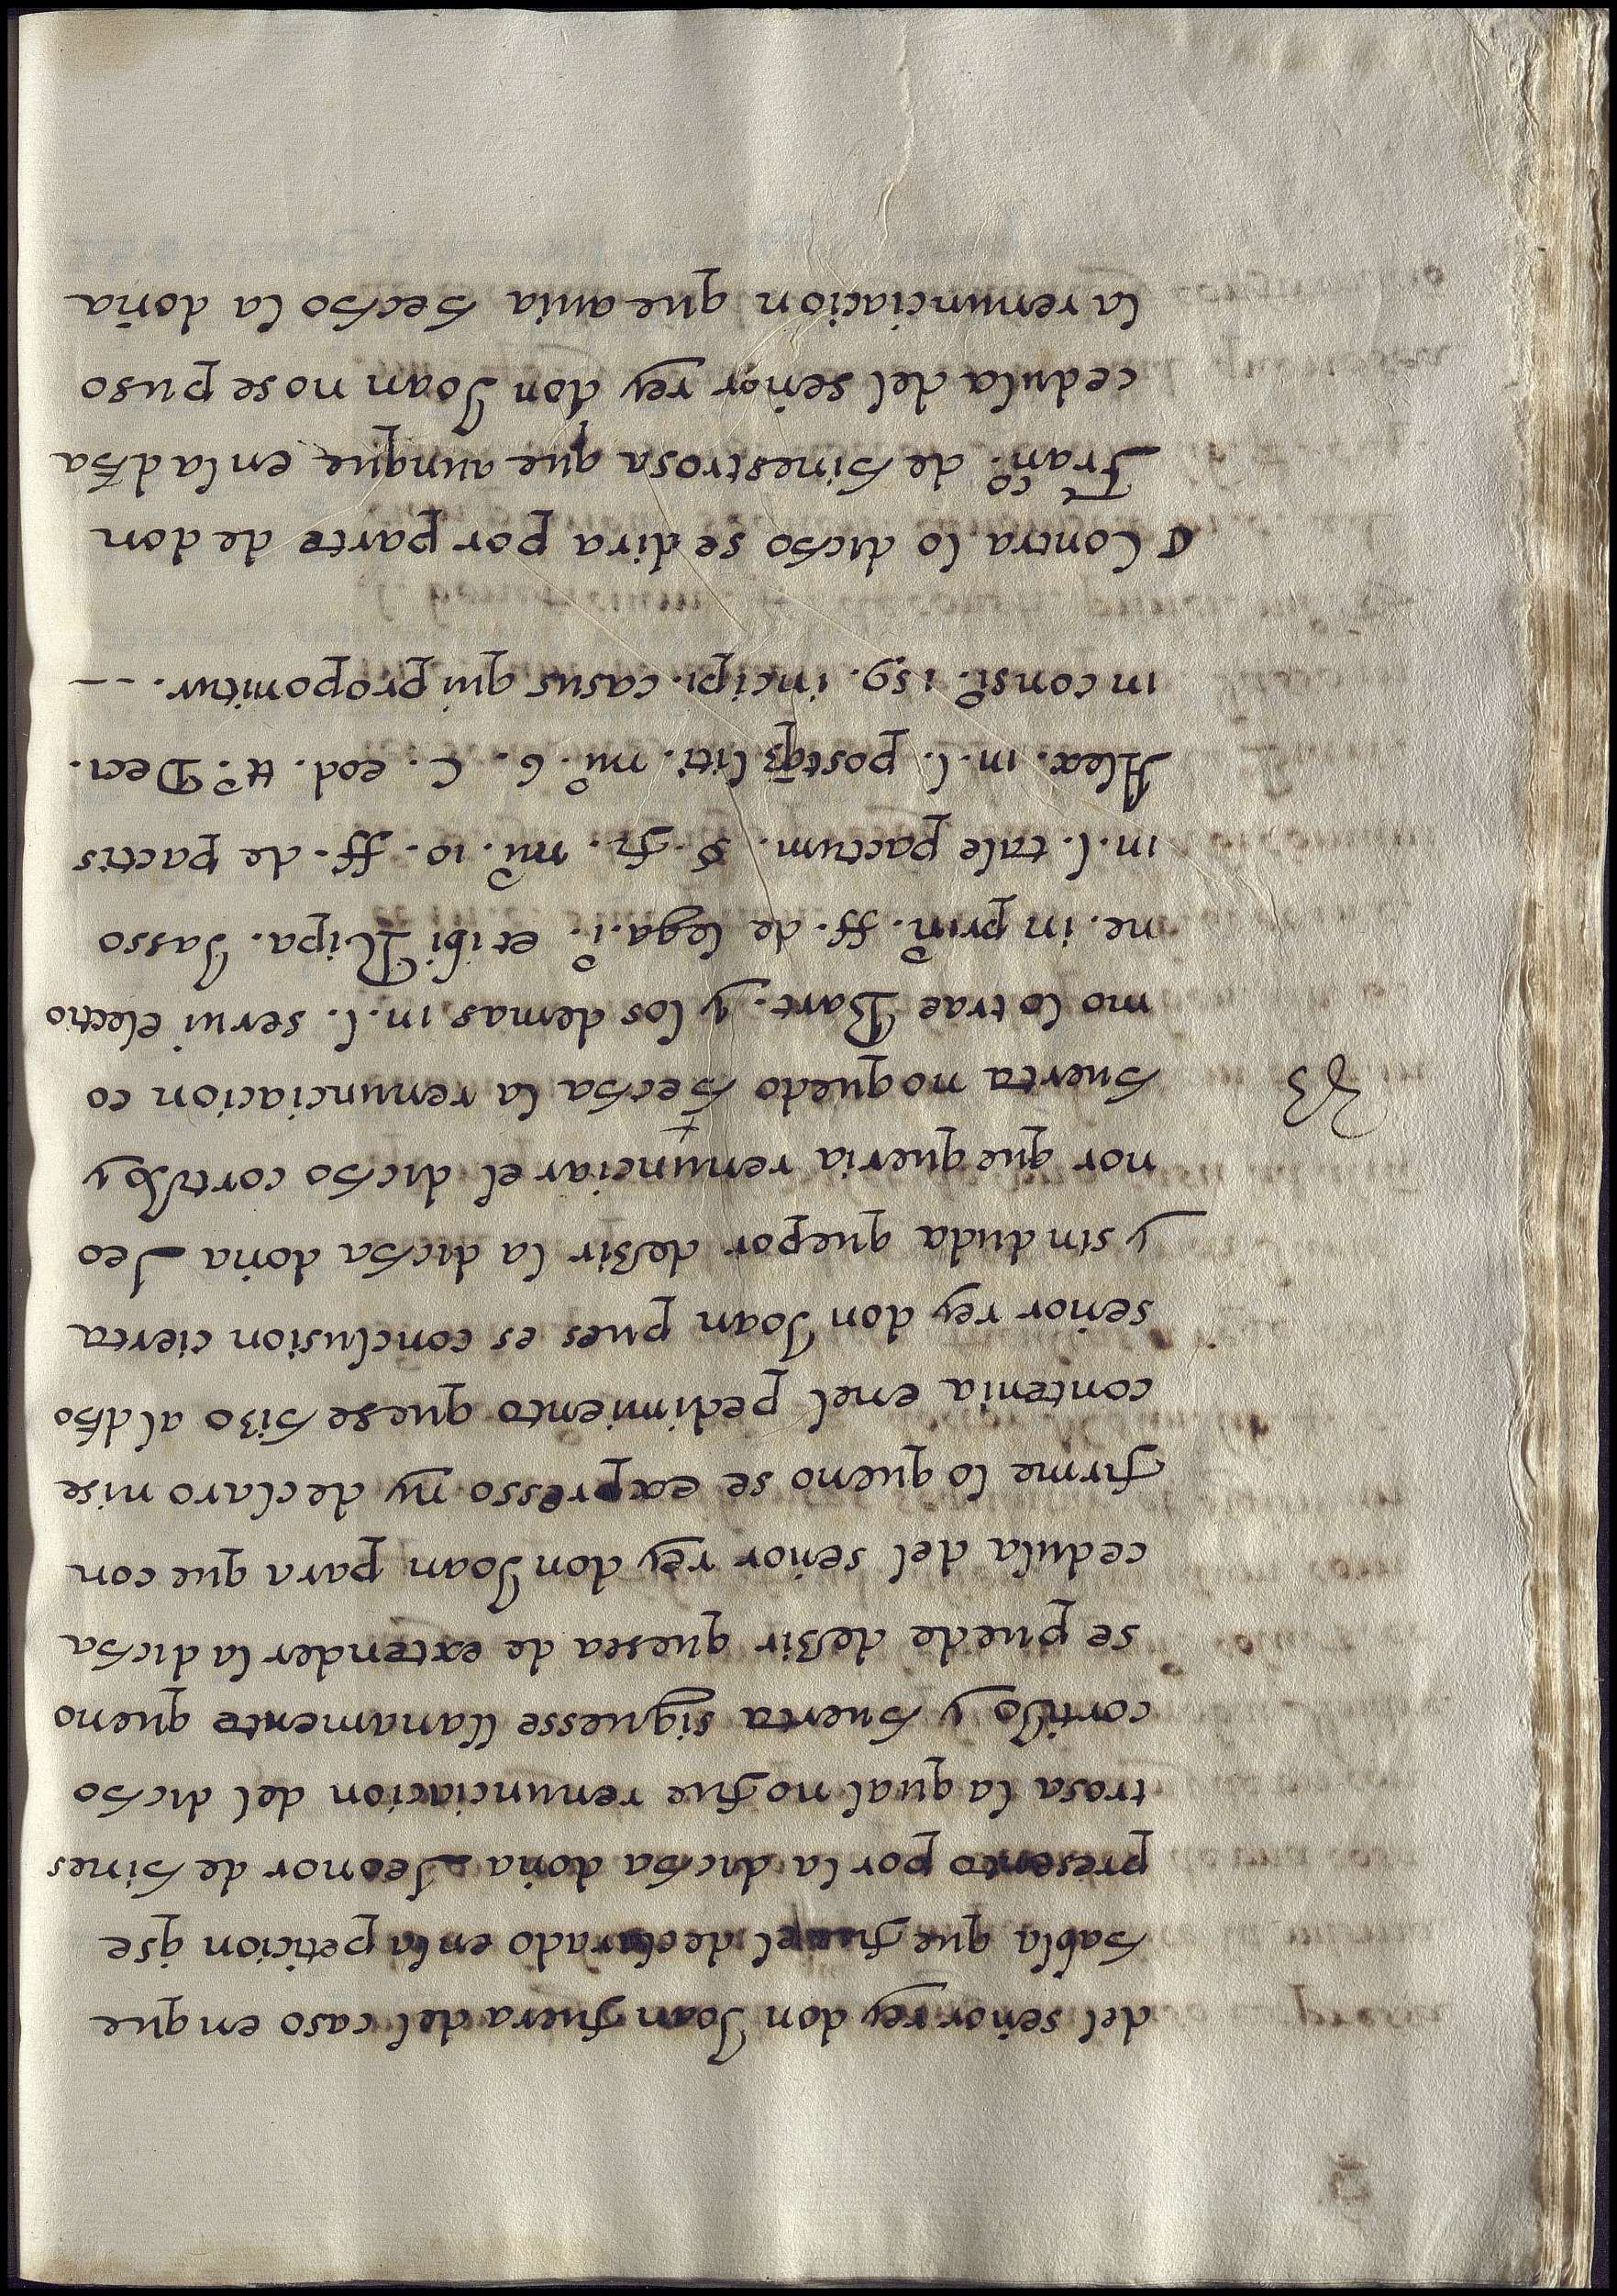 del señor rey don Joan fuera del caso en que
habla que fue el declarado en la peticion q̃ se
presento por la dicha doña Leonor de hines
trosa la qual no fue renunciacion del dicho
cortijo y huerta siguesse llanamente que no
se puede deßir que sea de extender la dicha
cedula del señor rey don Joan para que con
firme lo que no se expresso ny declaro ni se
contenia en el pedimiento que se hiȝo al dho
señor rey don Joan pues es conclusion cierta
y sin duda que por deßir la dicha doña Leo
nor que queria renunciar el dicho cortijo y
huerta no quedo hecha la renunciacion co
mo lo trae Bart. y los demas in. l. serui electio
ne. in prin̄. ff. de lega. i.º et ibi Ripa. Jasso
in. l. tale pactum. §. fi. nū. 10. ff. de pactis
Alex. in. l. postq̃ȝ liti. nuº. 6. C. eod. ttº. Deci.
in consi.º 159. incipi. casus qui proponitur. --
Contra lo dicho se dira por parte de don
Fran.co de hinestrosa que aunque en la dha
cedula del señor rey don Joan no se puso
la renunciacion que auia hecho la doña